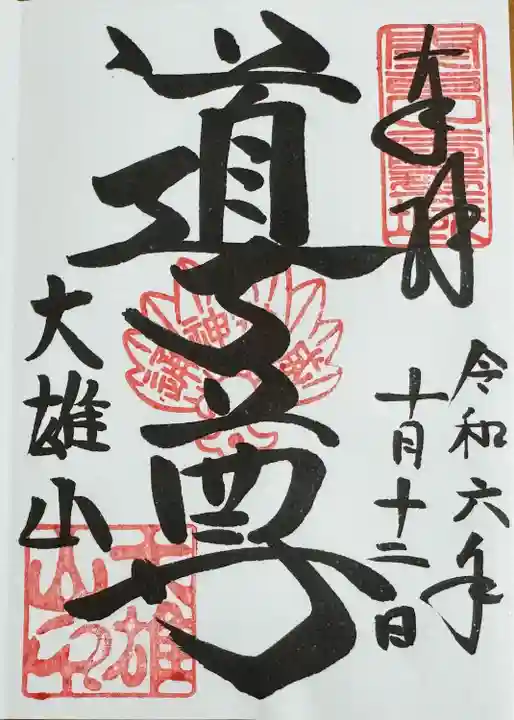 奉拝
令和六年
十月十二日
道了尊
大雄山
大雄
山印